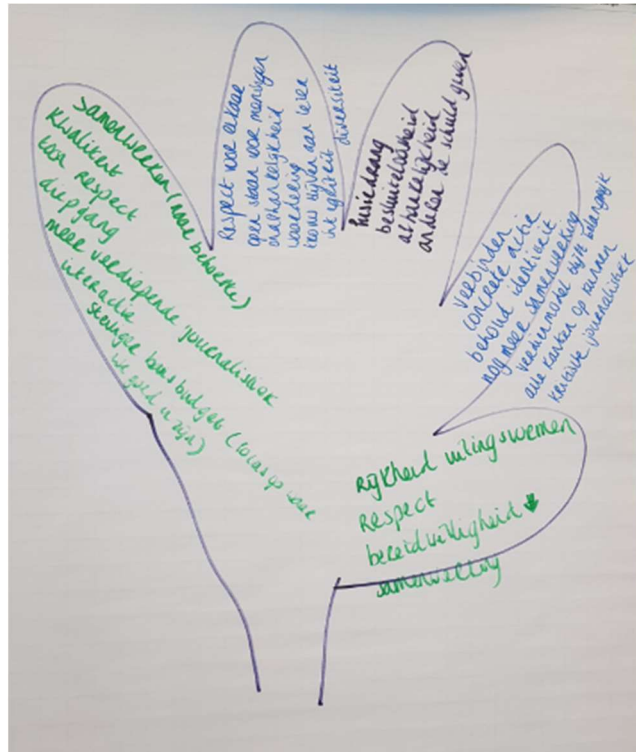 samenwerken (naar behoefte)
kwaliteit
respect
diepgang
meer verdiepende journalistiek
interactie
Respect voor elkaar
open staan voor meningen
onafhankelijkheid
iets blijven aan leren
integriteit diversiteit
besluiteloosheid
afhankelijkheid
anderen de schuld geven
verbinden
concrete actie
behoud identiteit
nog meer samenwerking
verdienmodel blijft belangrijk
alle kanten op kunnen
kritische journalistiek
Rijkheid uitingsvormen
Respect
bereidwilligheid
samenwerking